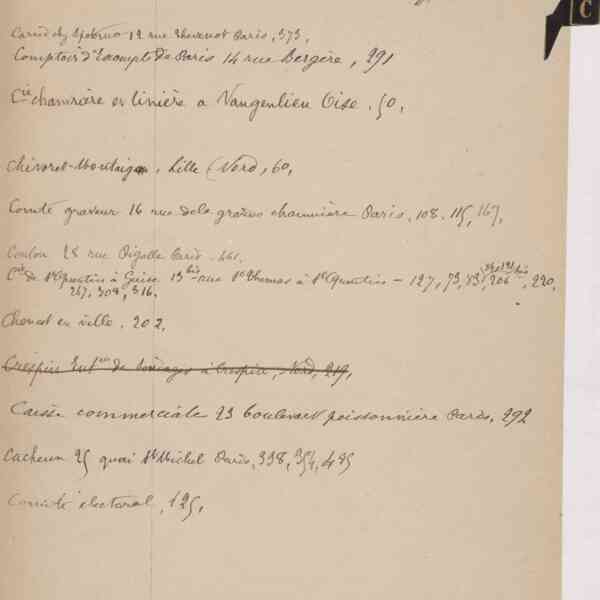 C
12 rue Thévenot Paris, 373,
Comptoir d'Escompte de Paris 14 rue Bergère, 291
Cie chanvrière et linière a Vaugenlieu Oise. 50,
Chivoret-Montaigne, Lille (Nord, 60,
Comte graveur 16 rue de la grande chaumière Paris. 108. 115, 167,
Coulon 28 rue Pigalle Paris. 661.
Cie de St Quentin à Guise 13 bis rue St Thomas à St Quentin – 127, 73, 83, 206, 220,
267, 308, 316,
en ville. 202,
Crespin Entr de à Crespin, Nord, 219,
Caisse commerciale 23 boulevart poissonnière Paris, 292
Cacheux 25 quai St Michel Paris, 338, 354, 425
Comité électoral, 125,